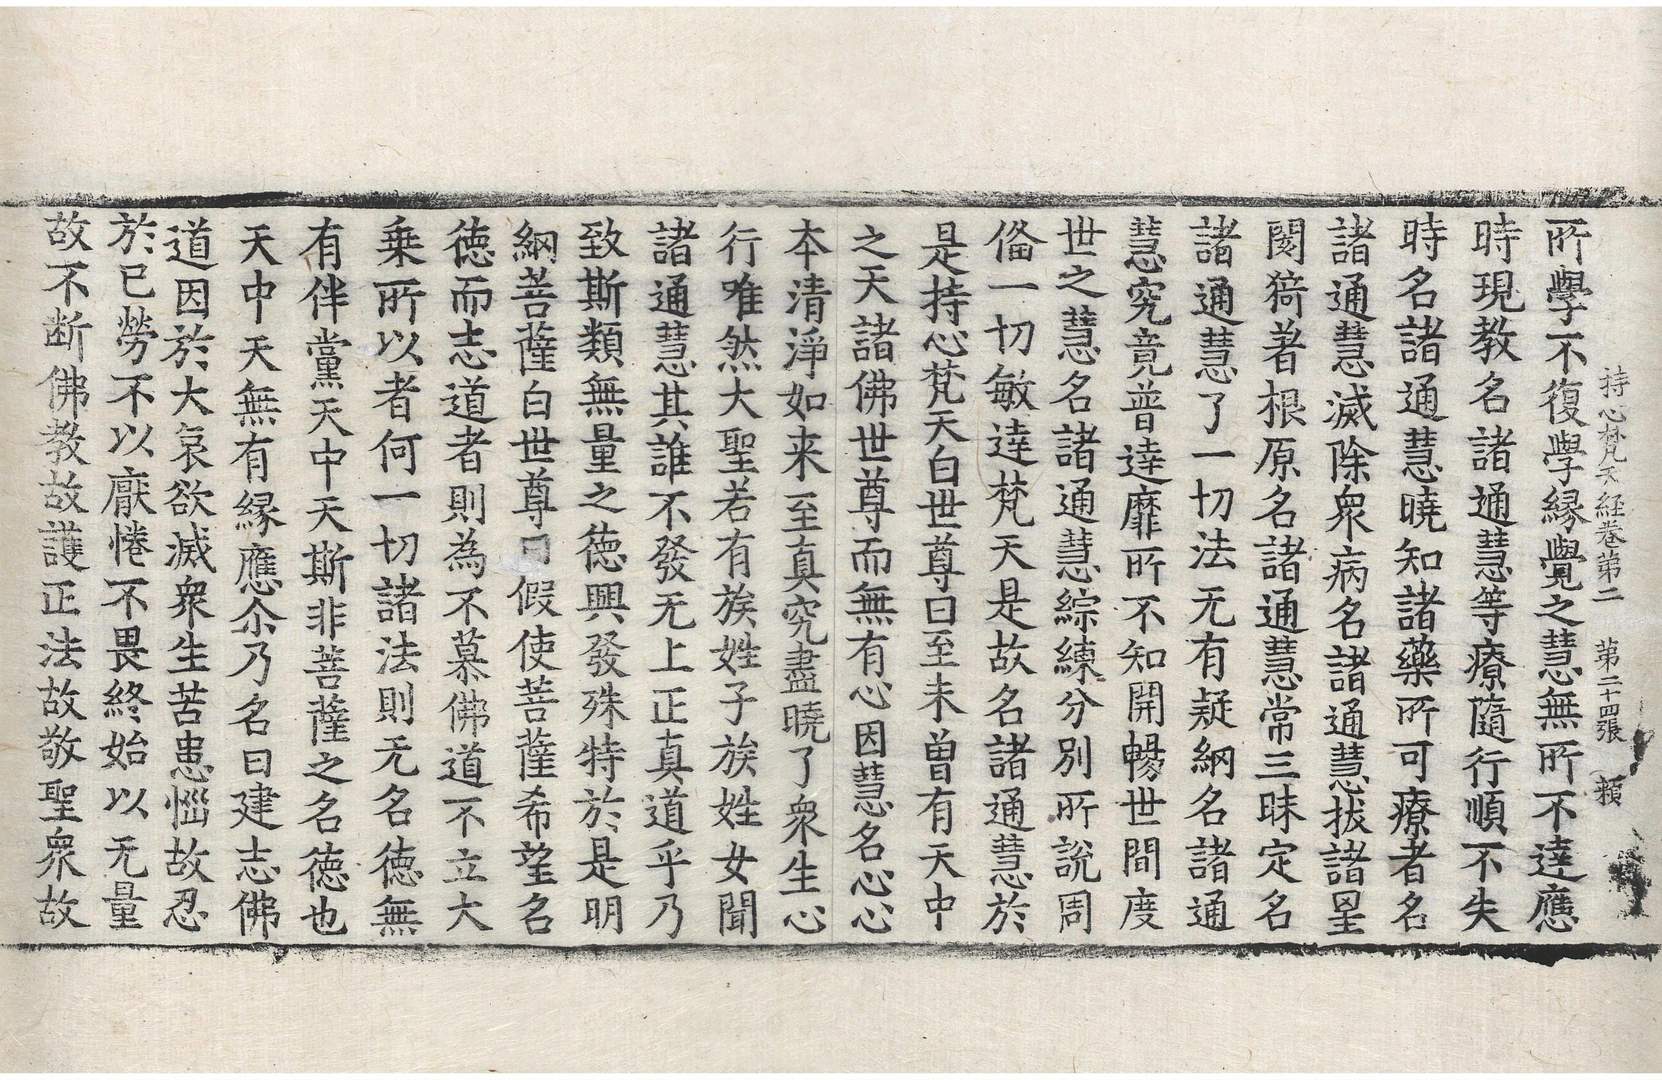 持心梵天経卷第二　第二十四張　頼
所學不復學縁覺之慧無所不達應
時現教名諸通慧等療隨行順不失
時名諸通慧曉知諸藥所可療者名
諸通慧滅除衆病名諸通慧拔諸罣
閡猗著根原名諸通慧常三昧定名
諸通慧了一切法无有疑網名諸通
慧究竟普達靡所不知開暢世間度
世之慧名諸通慧綜練分別所說周
俻一切敏達梵天是故名諸通慧於
是持心梵天白世尊曰至未曽有天中
之天諸佛世尊而無有心因慧名心心
本清淨如来至真究盡曉了衆生心
行唯然大聖若有族姓子族姓女聞
諸通慧其誰不發无上正真道乎乃
致斯類無量之徳興發殊特於是明
網菩薩白世尊曰假使菩薩希望名
徳而志道者則為不慕佛道不立大
乗所以者何一切諸法則无名徳無
有伴黨天中天斯非菩薩之名徳也
天中天無有縁應尒乃名曰建志佛
道因於大哀欲滅衆生苦患惱故忍
於已勞不以厭惓不畏終始以无量
故不断佛教故護正法故敬聖衆故